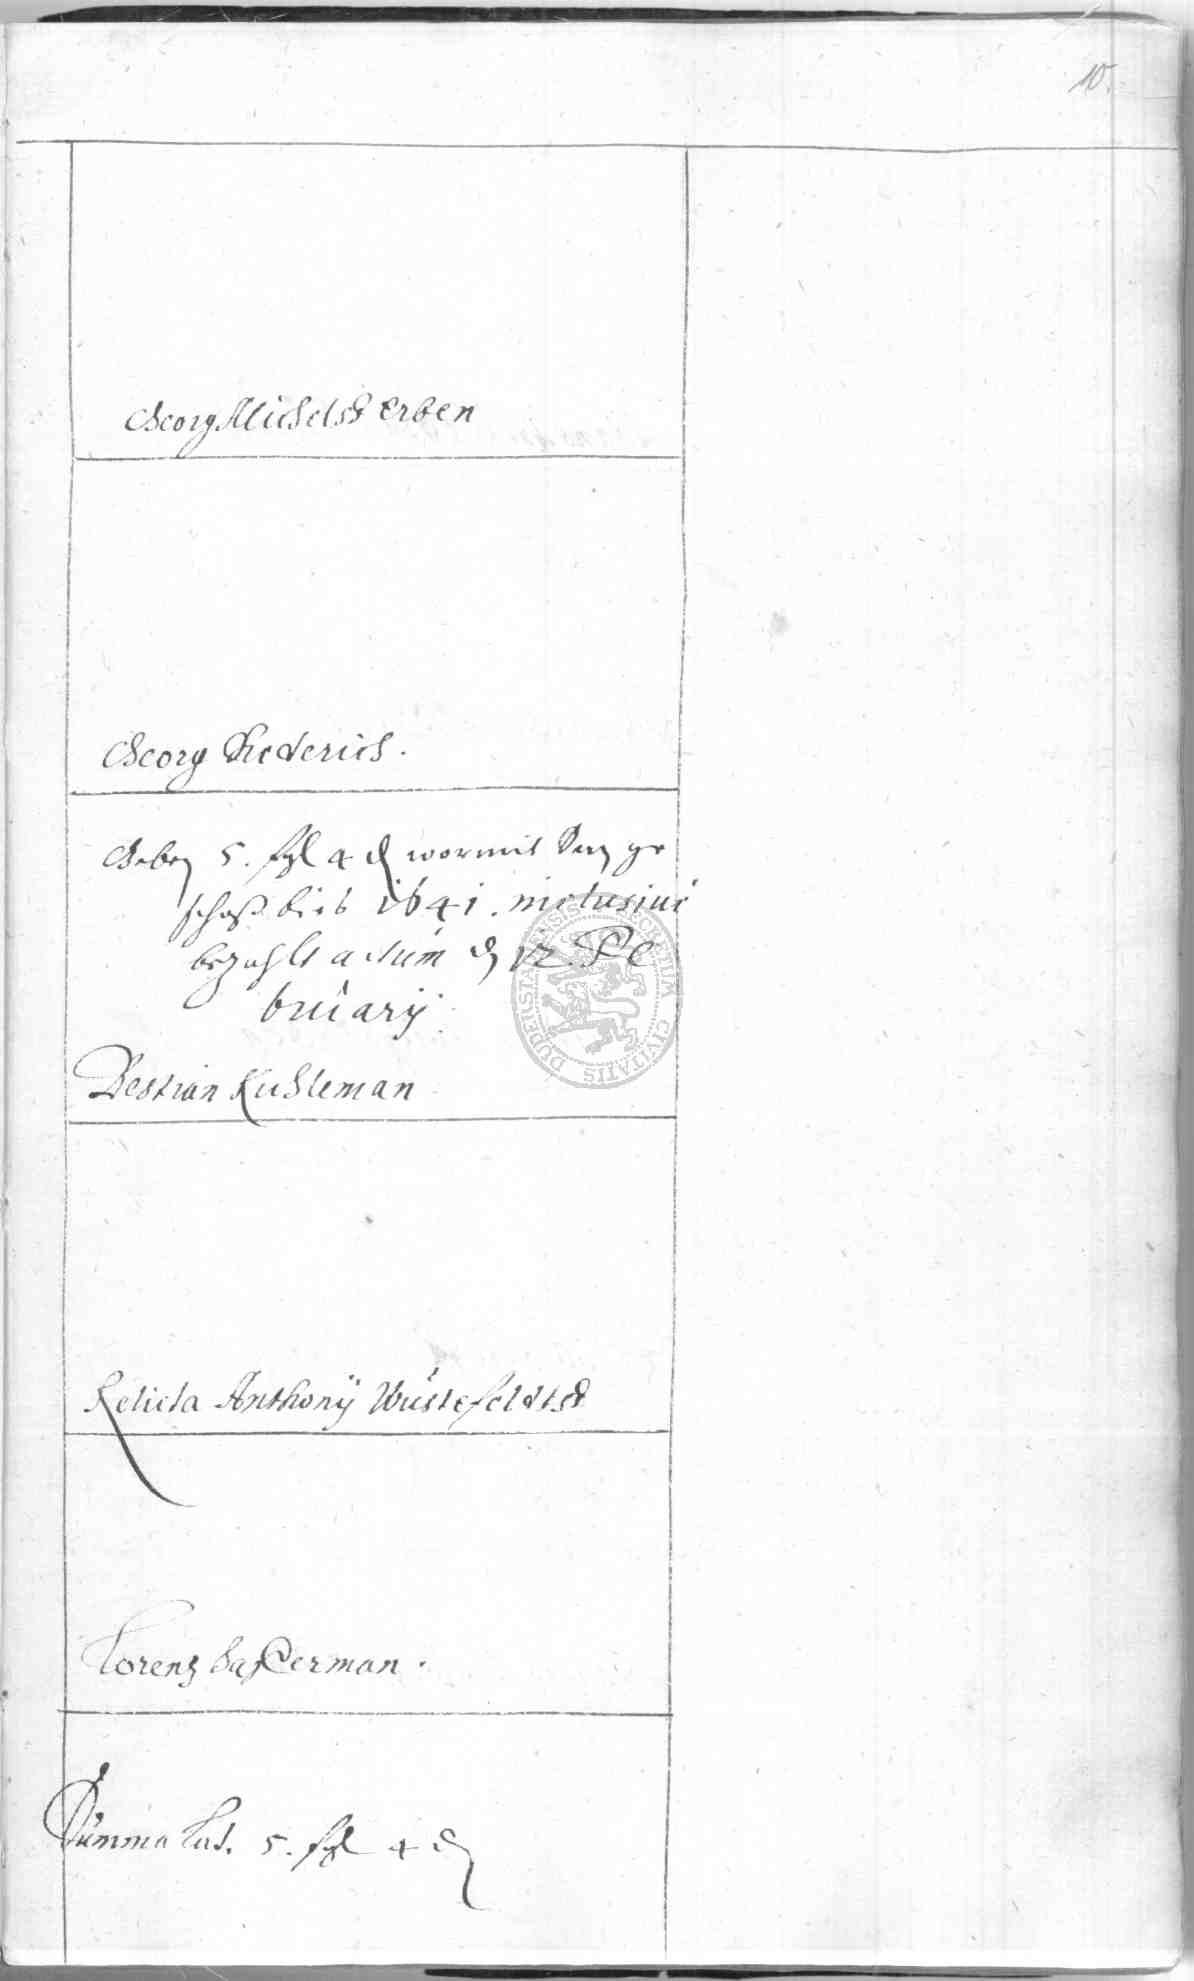 10.
Georg Michelß Erben
Georg Diederich.
Geben 5. ßl 4 d wormit Den ge
schoß biß 1641. inclusiue
bezahlt actum d 12. Fe
bruarij.
Bestian Kuhleman
Relicta Anthonij Wüstefeldtß
Lorenz Backerman.
Summa Lat. 5. ßl 4 d
SECRETUM CIVITATIS DUDERSTADENSIS